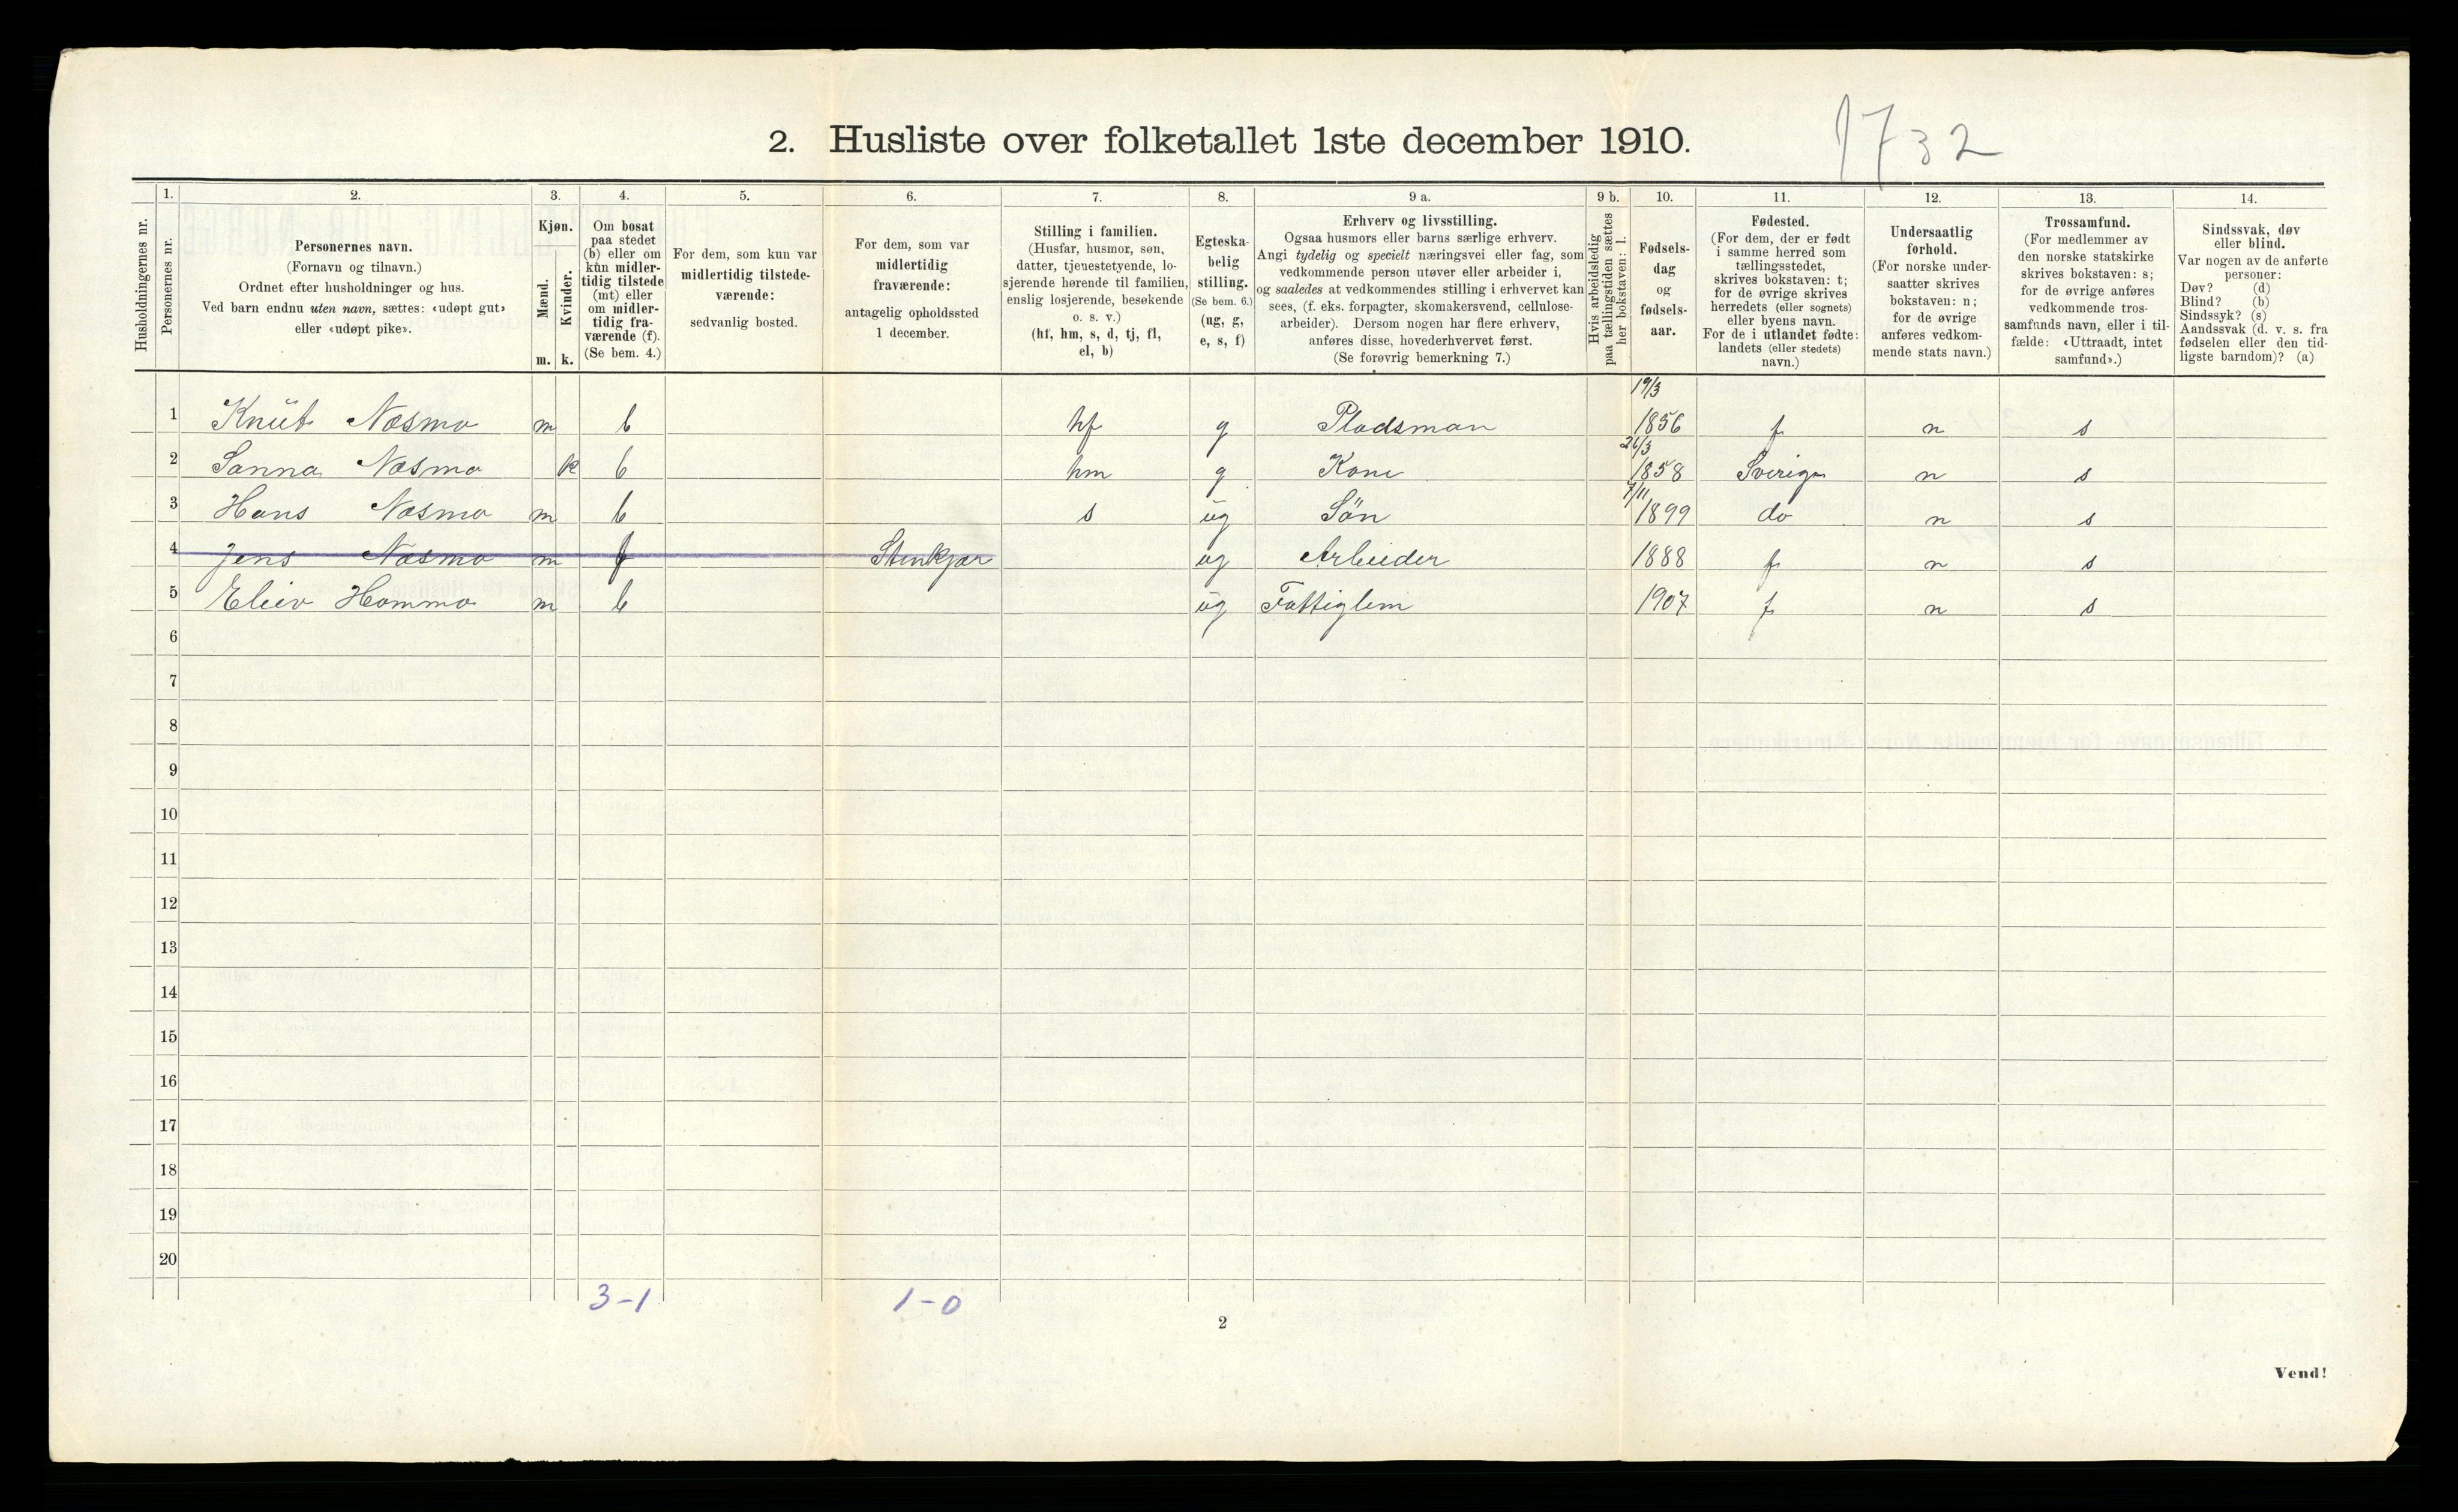 2. Husliste over folketallet 1ste december 1910.
1732
Husholdningernes nr.
1.
Personernes nr.
2.
Personernes navn.
(Fornavn og tilnavn.)
Ordnet efter husholdninger og hus.
Ved barn endnu uten navn, sættes: «udøpt gut»
eller «udøpt pike».
3.
Kjøn.
Mænd.
Kvinder.
m. k.
4.
Om bosat
paa stedet
(b) eller om
kun midler-
tidig tilstede
(mt) eller
om midler-
tidig fra-
værende (f).
(Se bem. 4.)
5.
For dem, som kun var
midlertidig tilstede-
værende:
sedvanlig bosted.
6.
For dem, som var
midlertidig
fraværende:
antagelig opholdssted
1 december.
7.
Stilling i familien.
(Husfar, husmor, søn,
datter, tjenestetyende, lo-
sjerende hørende til familien,
enslig losjerende, besøkende
o. s. v.)
(hf, hm, s, d, tj, fl,
el, b)
8.
Egteska-
belig
stilling.
(Se bem. 6.)
(ug, g,
e, s, f)
9 a.
Erhverv og livsstilling.
Ogsaa husmors eller barns særlige erhverv.
Angi tydelig og specielt næringsvei eller fag, som
vedkommende person utøver eller arbeider i,
og saaledes at vedkommendes stilling i erhvervet kan
sees, (f. eks. forpagter, skomakersvend, cellulose-
arbeider). Dersom nogen har flere erhverv,
anføres disse, hovederhvervet først.
(Se forøvrig bemerkning 7.)
9 b.
Hvis arbeidsledig
paa tællingstiden sættes
her bokstaven: l.
10.
Fødsels-
dag
og
fødsels-
aar.
11.
Fødested.
(For dem, der er født
i samme herred som
tællingsstedet,
skrives bokstaven: t;
for de øvrige skrives
herredets (eller sognets)
eller byens navn.
For de i utlandet fødte:
landets (eller stedets)
navn.)
12.
Undersaatlig
forhold.
(For norske under-
saatter skrives
bokstaven: n;
for de øvrige
anføres vedkom-
mende stats navn.)
13.
Trossamfund.
(For medlemmer av
den norske statskirke
skrives bokstaven: s;
for de øvrige anføres
vedkommende tros-
samfunds navn, eller i til-
fælde: «Uttraadt, intet
samfund».)
14.
Sindssvak, døv
eller blind.
Var nogen av de anførte
personer:
Døv? (d)
Blind? (b)
Sindssyk? (s)
Aandssvak (d. v. s. fra
fødselen eller den tid-
ligste barndom)? (a)
1 Knut Næsmo m b hf g Pladsman 19/3 1856 t n s
2 Sanna Næsmo k b hm g Kone 26/3 1858 Sverige n s
3 Hans Næsmo m b s ug Søn 7/11 1899 do n s
4 Jens Næsmo m f Stenkjær ug Arbeider 1888 t n s
5 Eliev Hammo m b ug Fattiglem 1907 t n s
6
7
8
9
10
11
12
13
14
15
16
17
18
19
20
3-1 1-0
2
Vend!